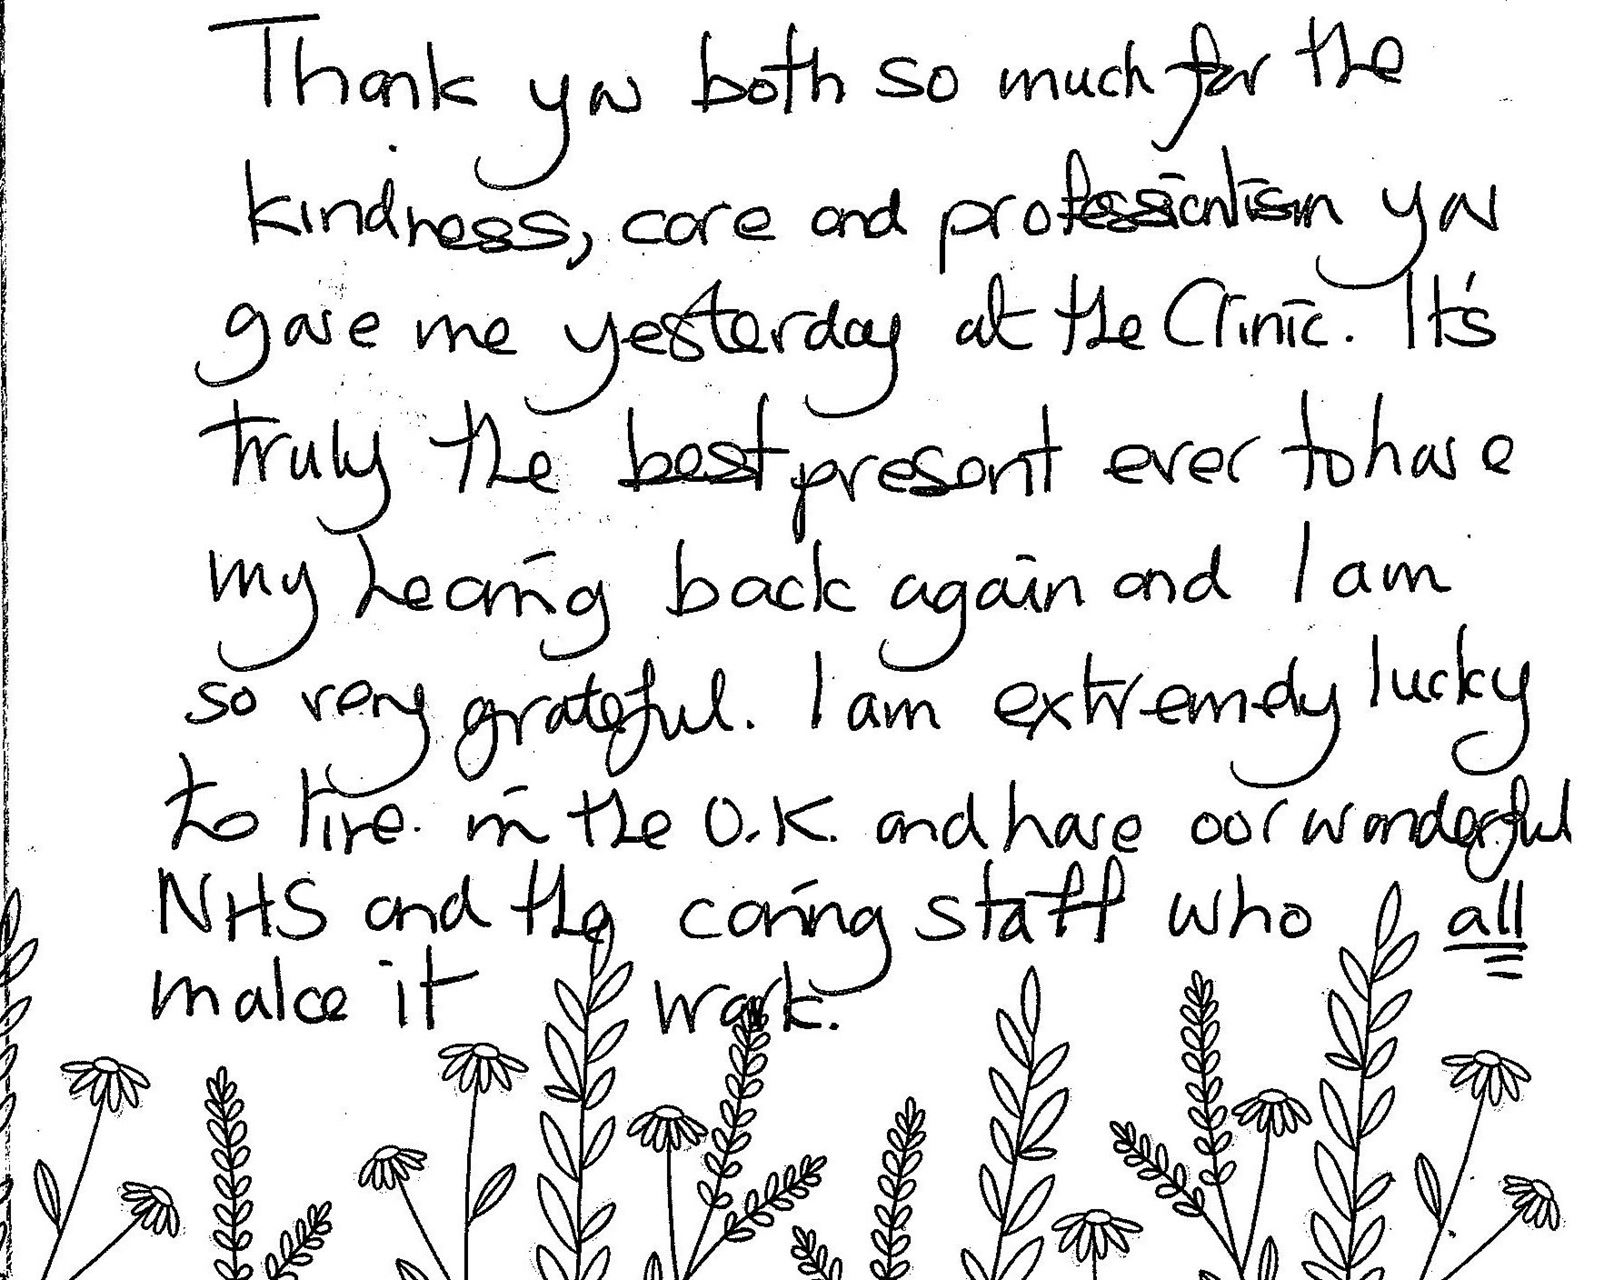 Thank you both so much for the
kindness, care and professionalism you
gave me yesterday at the Clinic. It's
truly the best present ever to have
my hearing back again and I am
so very grateful. I am extremely lucky
to live in the U.K. and have our wonderful
NHS and the caring staff who all
make it work.